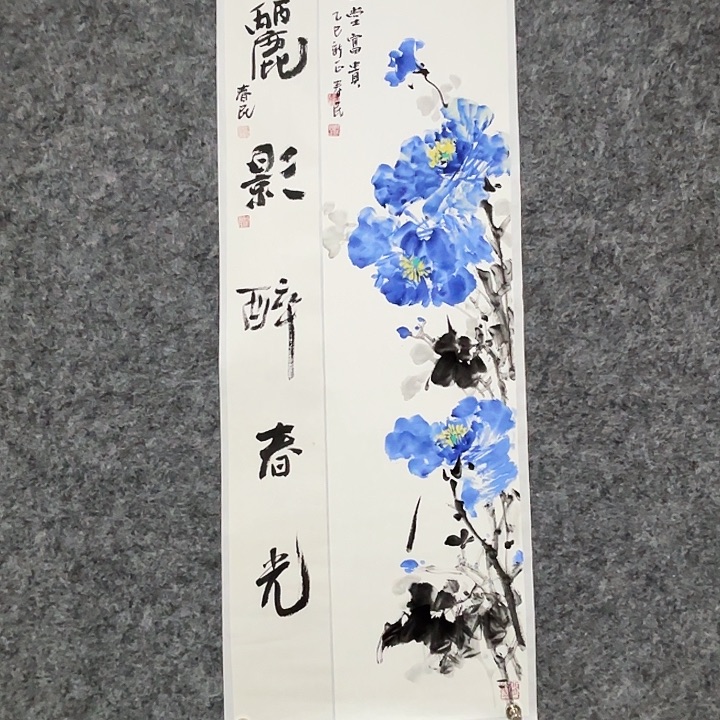 麗影醉春光
春民
富貴
乙巳新正春民